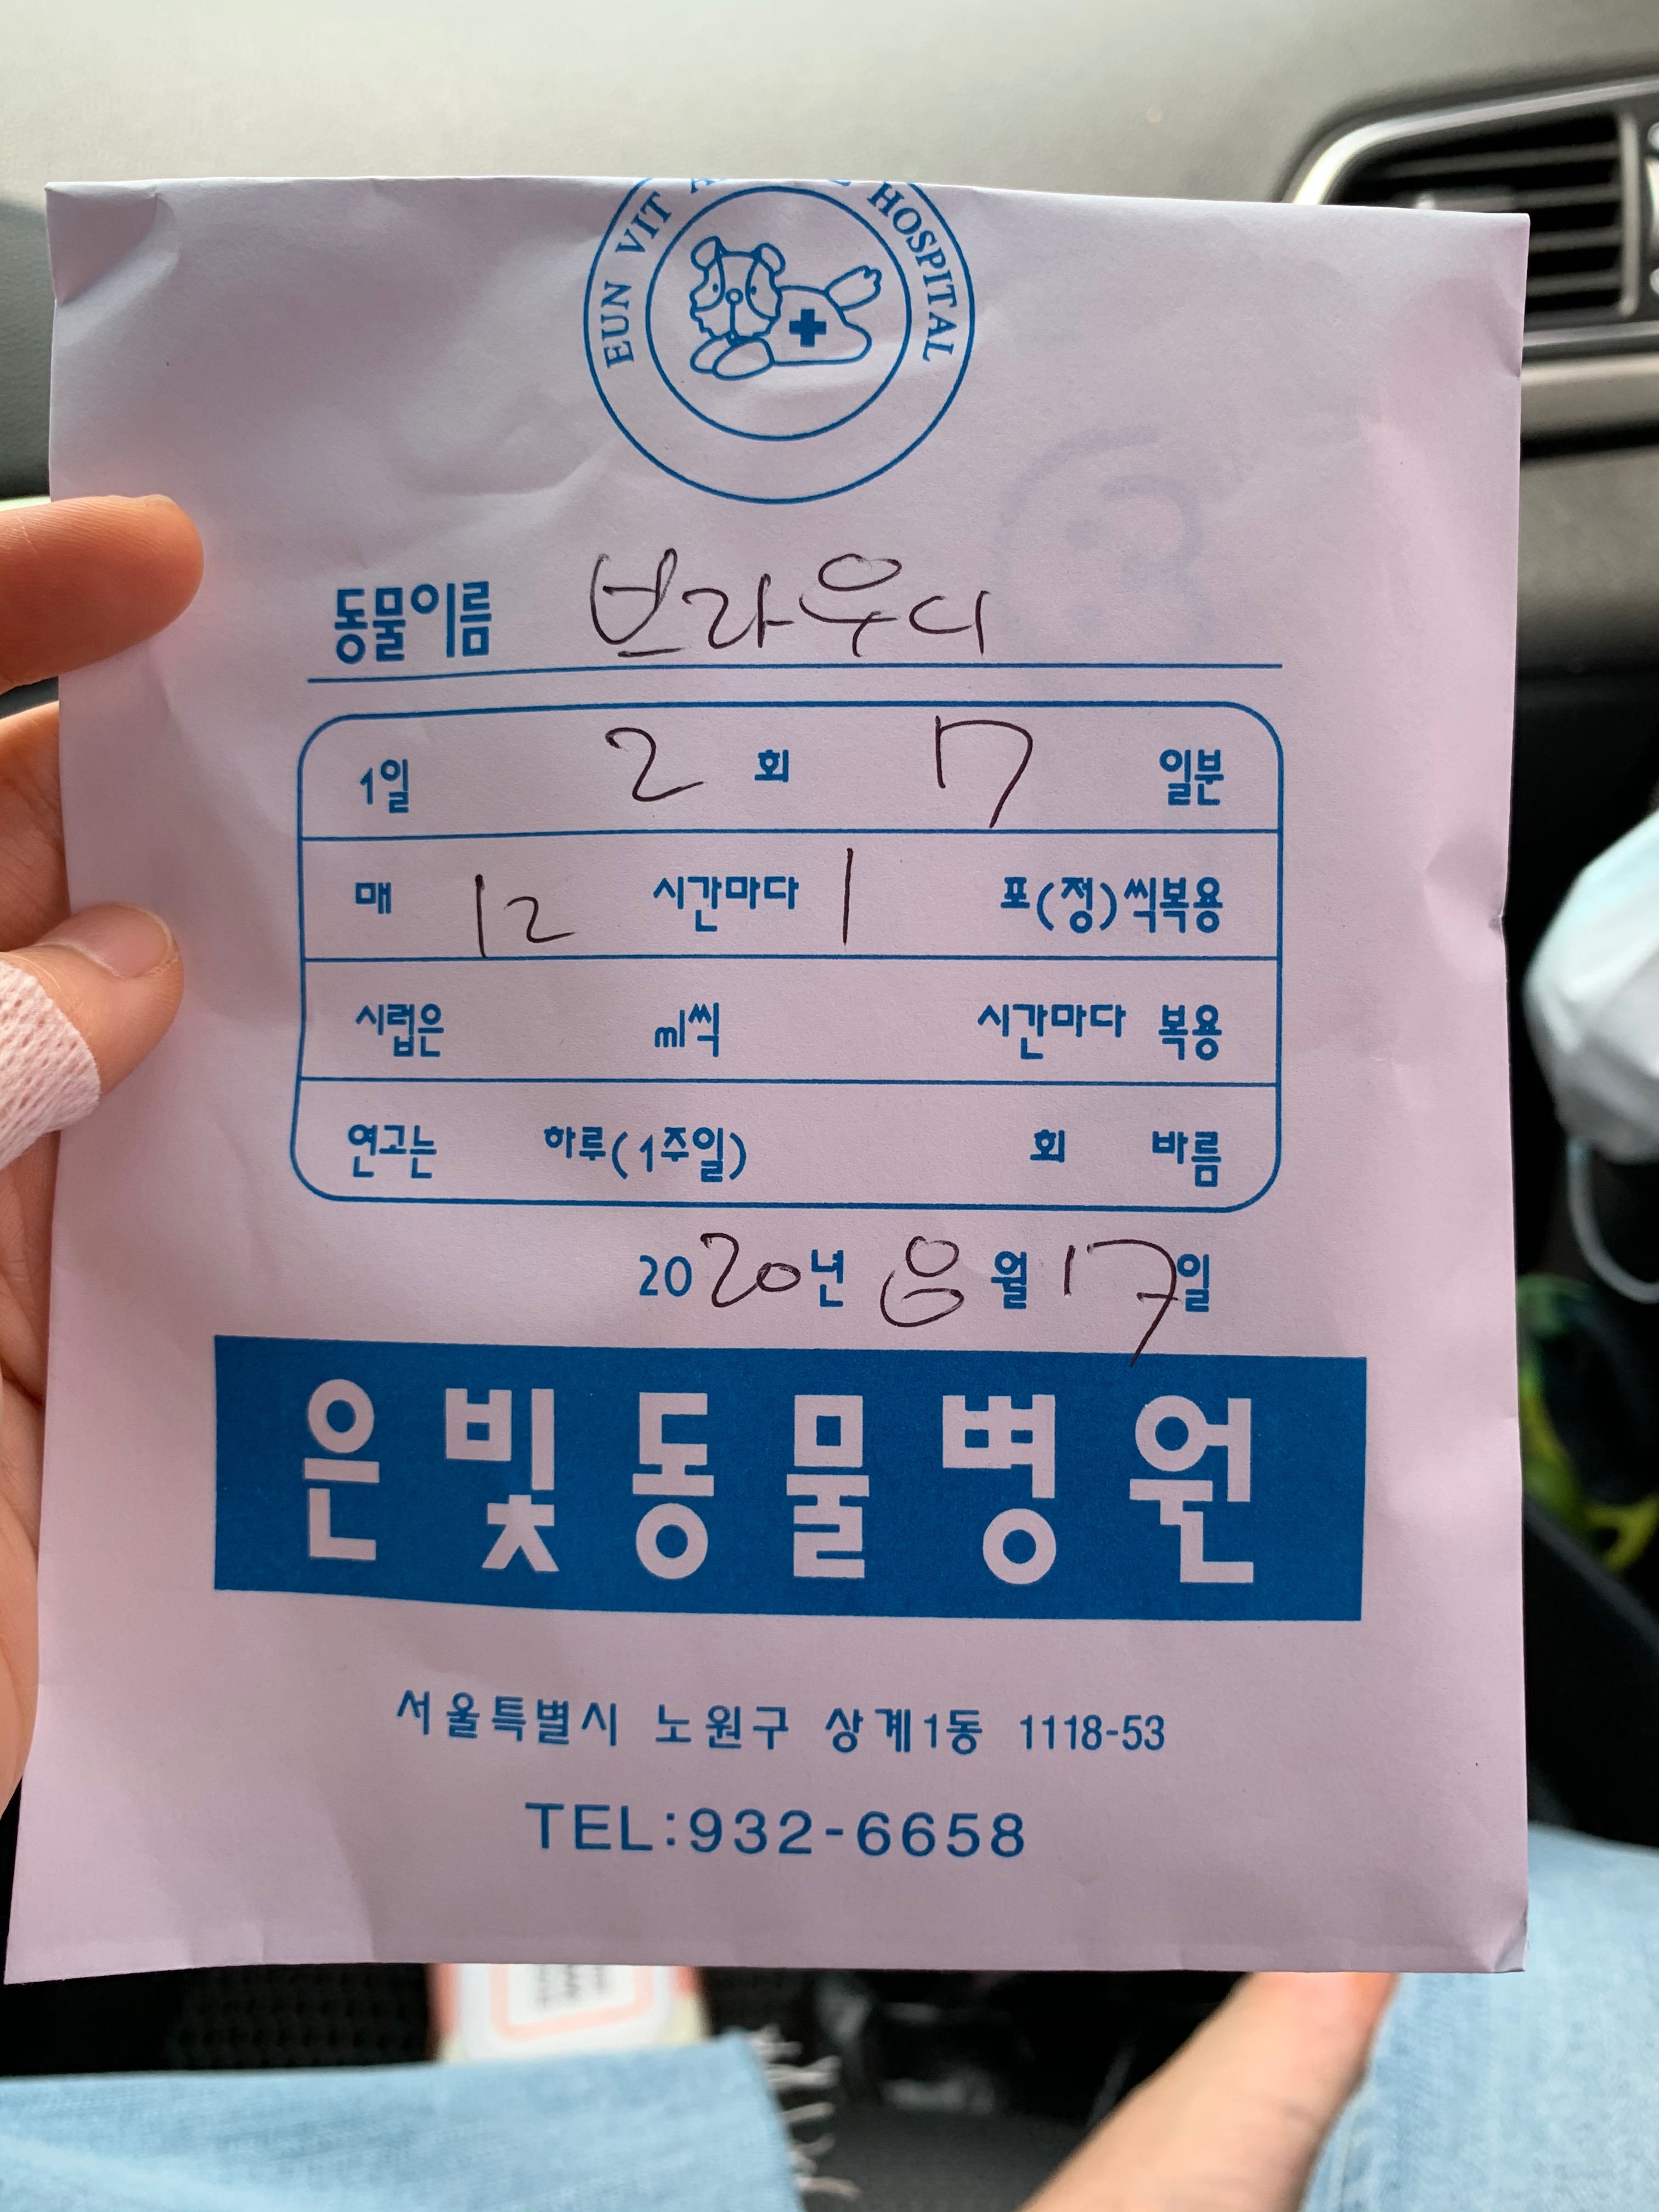 EUN VIT HOSPITAL
동물이름 브라우디
1일 2 회 7 일분
매 12 시간마다 1 포(정)씩복용
시럽은 ml씩 시간마다 복용
연고는 하루(1주일) 회 바름
2020년 8월 17일
은빛동물병원
서울특별시 노원구 상계1동 1118-53
TEL:932-6658